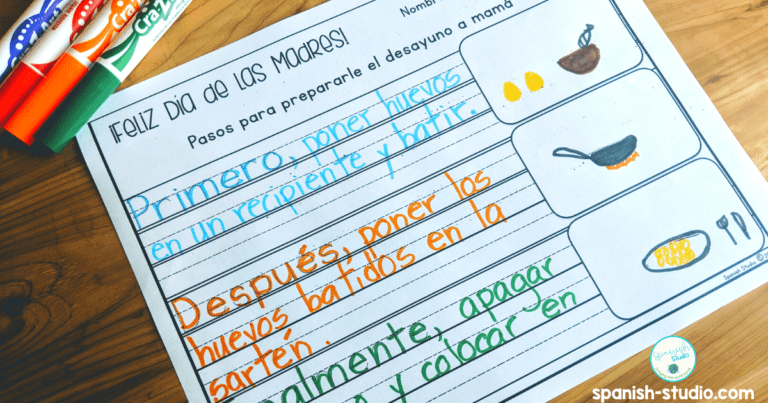 Nombre
¡FELIZ DÍA DE LAS MADRES!
Pasos para prepararle el desayuno a mamá
Primero, poner huevos
en un recipiente y batir.
Después, poner los
huevos batidos en la
sartén.
almente, apagar
y colocar en
Spanish Studio ©
Spanish
Studio
spanish-studio.com